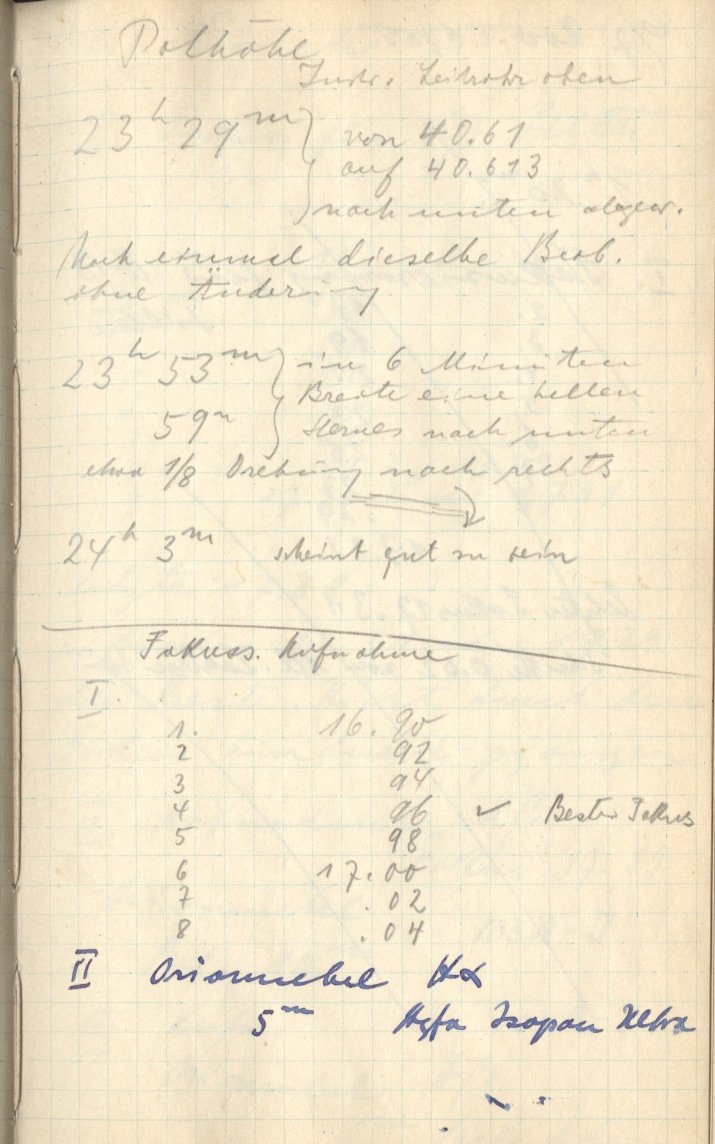 Polhöhe
Instr. Leitrohr oben
23h 29m } von 40.61
auf 40.613
nach unten abgew.
Noch einmal dieselbe Beob.
ohne Änderung
23h 53m } in 6 Minuten
Breite eine hellen
59m Sternes nach unten
etwa 1/8 Drehung nach rechts
24h 3m scheint gut zu sein
Fokuss. Aufnahme
I.
1. 16.90
2 92
3 94
4 96 ✓ Bester Fokus
5 98
6 17.00
7 .02
8 .04
II Orionnebel Hα
5m Agfa Isopan Ultra